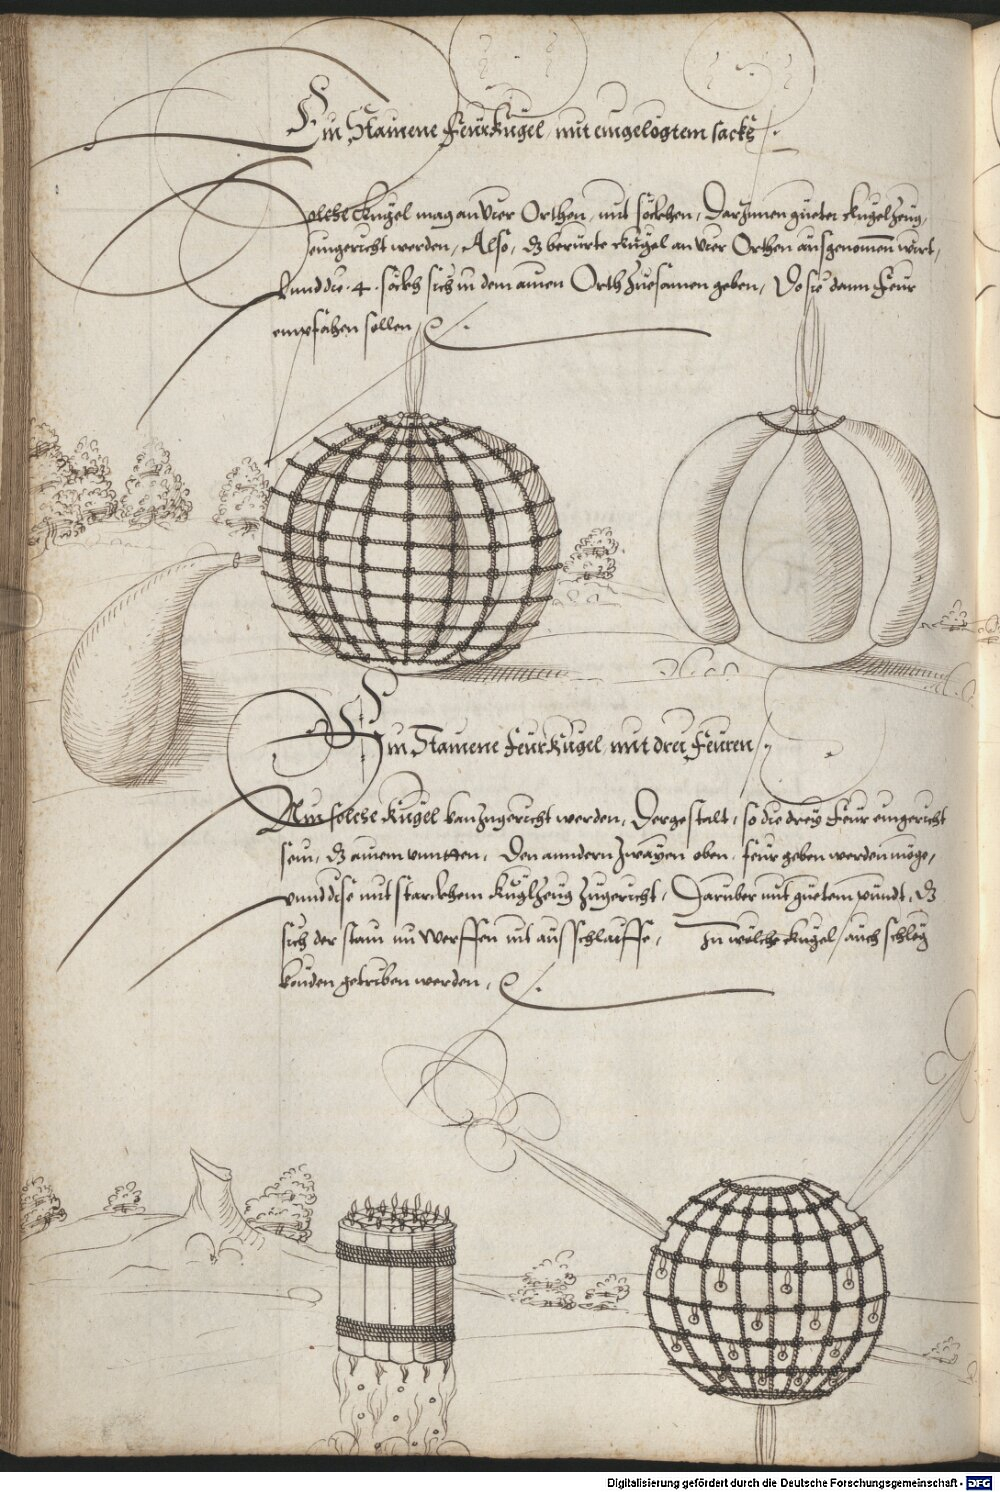 Ein Stainene Feürkugel, mit eingelögtem sackh
Solche kugel mag an vier Orthen, mit söckhen, Darinnen gueter kugelzeug,
eingericht werden, Also, dz berürte kugel an vier Orthen ausgenomen wirt,
vnnd die .4. söckh sich in dem ainen Orth zuesamen geben, Do sie dann Feur
empfahen sollen
Ein Stainene Feürkugel, mit drei Feüren
Ain solche kugel kan zugericht werden, Dergestalt, so die drey Feur eingericht
sein, dz ainem vnntten, Den anndern zwayen oben, feur geben werden möge,
vnnd dise mit starckhem kuglzeug zugericht, Darüber mit guetem pundt, dz
sich der stain im Werffen nit aufschlaiffe, In wölche kugel, auch schleg
könden getriben werden,
Digitalisierung gefördert durch die Deutsche Forschungsgemeinschaft - DFG